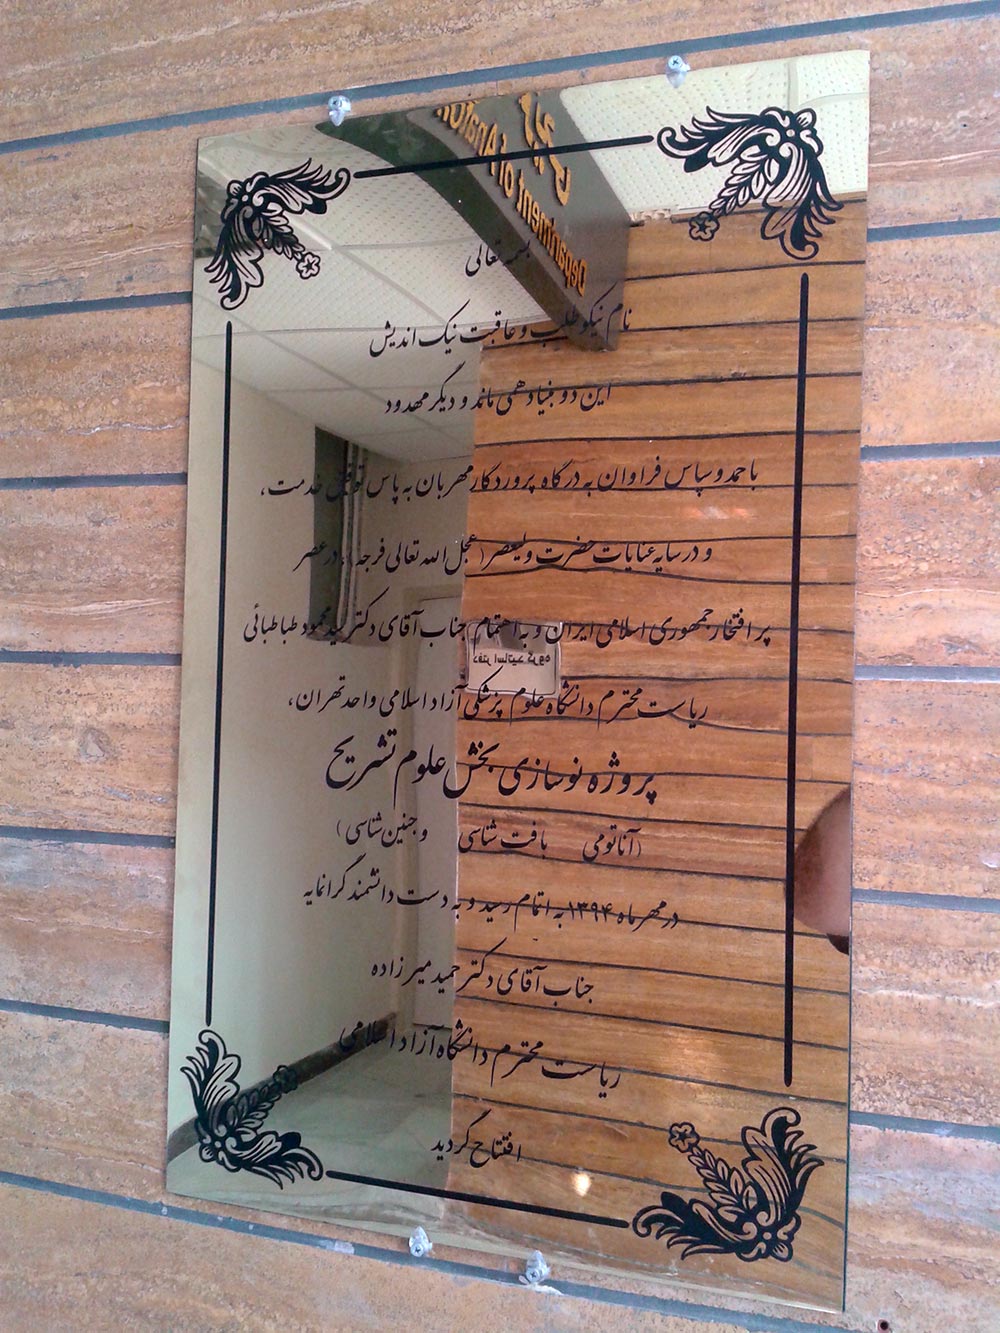 بسمه تعالی
نام نیکو طلب و عاقبت نیک اندیش
این دو بنیاد همی ماند و دیگر مهدود
با حمد و سپاس فراوان به درگاه پروردگار مهربان به پاس توفیق خدمت،
و در سایه عنایات حضرت ولیعصر (عجل الله تعالی فرجه)، در عصر
پر افتخار جمهوری اسلامی ایران و به اهتمام جناب آقای دکتر سید محمود طباطبائی
ریاست محترم دانشگاه علوم پزشکی آزاد اسلامی واحد تهران،
پروژه نوسازی بخش علوم تشریح
(آناتومی بافت شناسی و جنین شناسی)
در مهر ماه ۱۳۹۴ به اتمام رسید و به دست دانشمند گرانمایه
جناب آقای دکتر حمید میرزاده
ریاست محترم دانشگاه آزاد اسلامی
افتتاح گردید
Department of
دفتر اساتید گروه